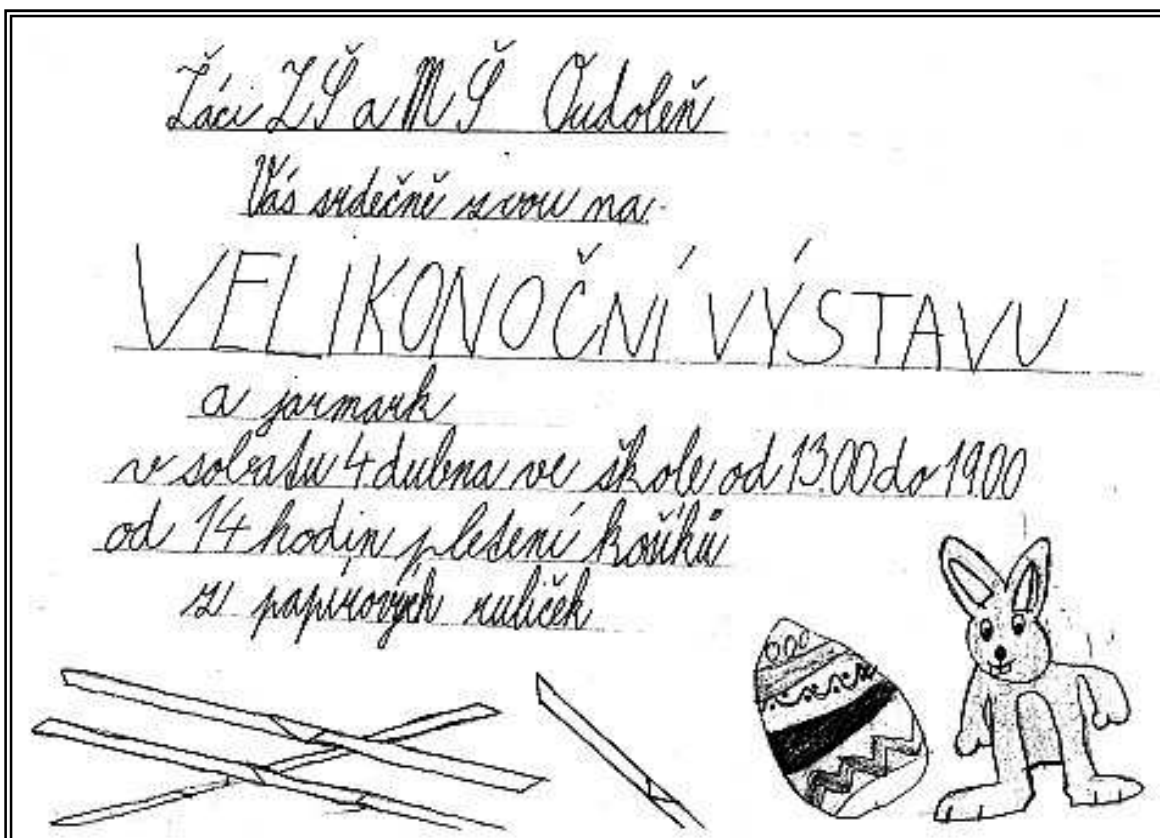 Žáci ZŠ a MŠ Oudoleň
Vás srdečně zvou na
VELIKONOČNÍ VÝSTAVU
a jarmark
v sobotu 4. dubna ve škole od 13.00 do 19.00
od 14 hodin pletení košíků
z papírových ruliček